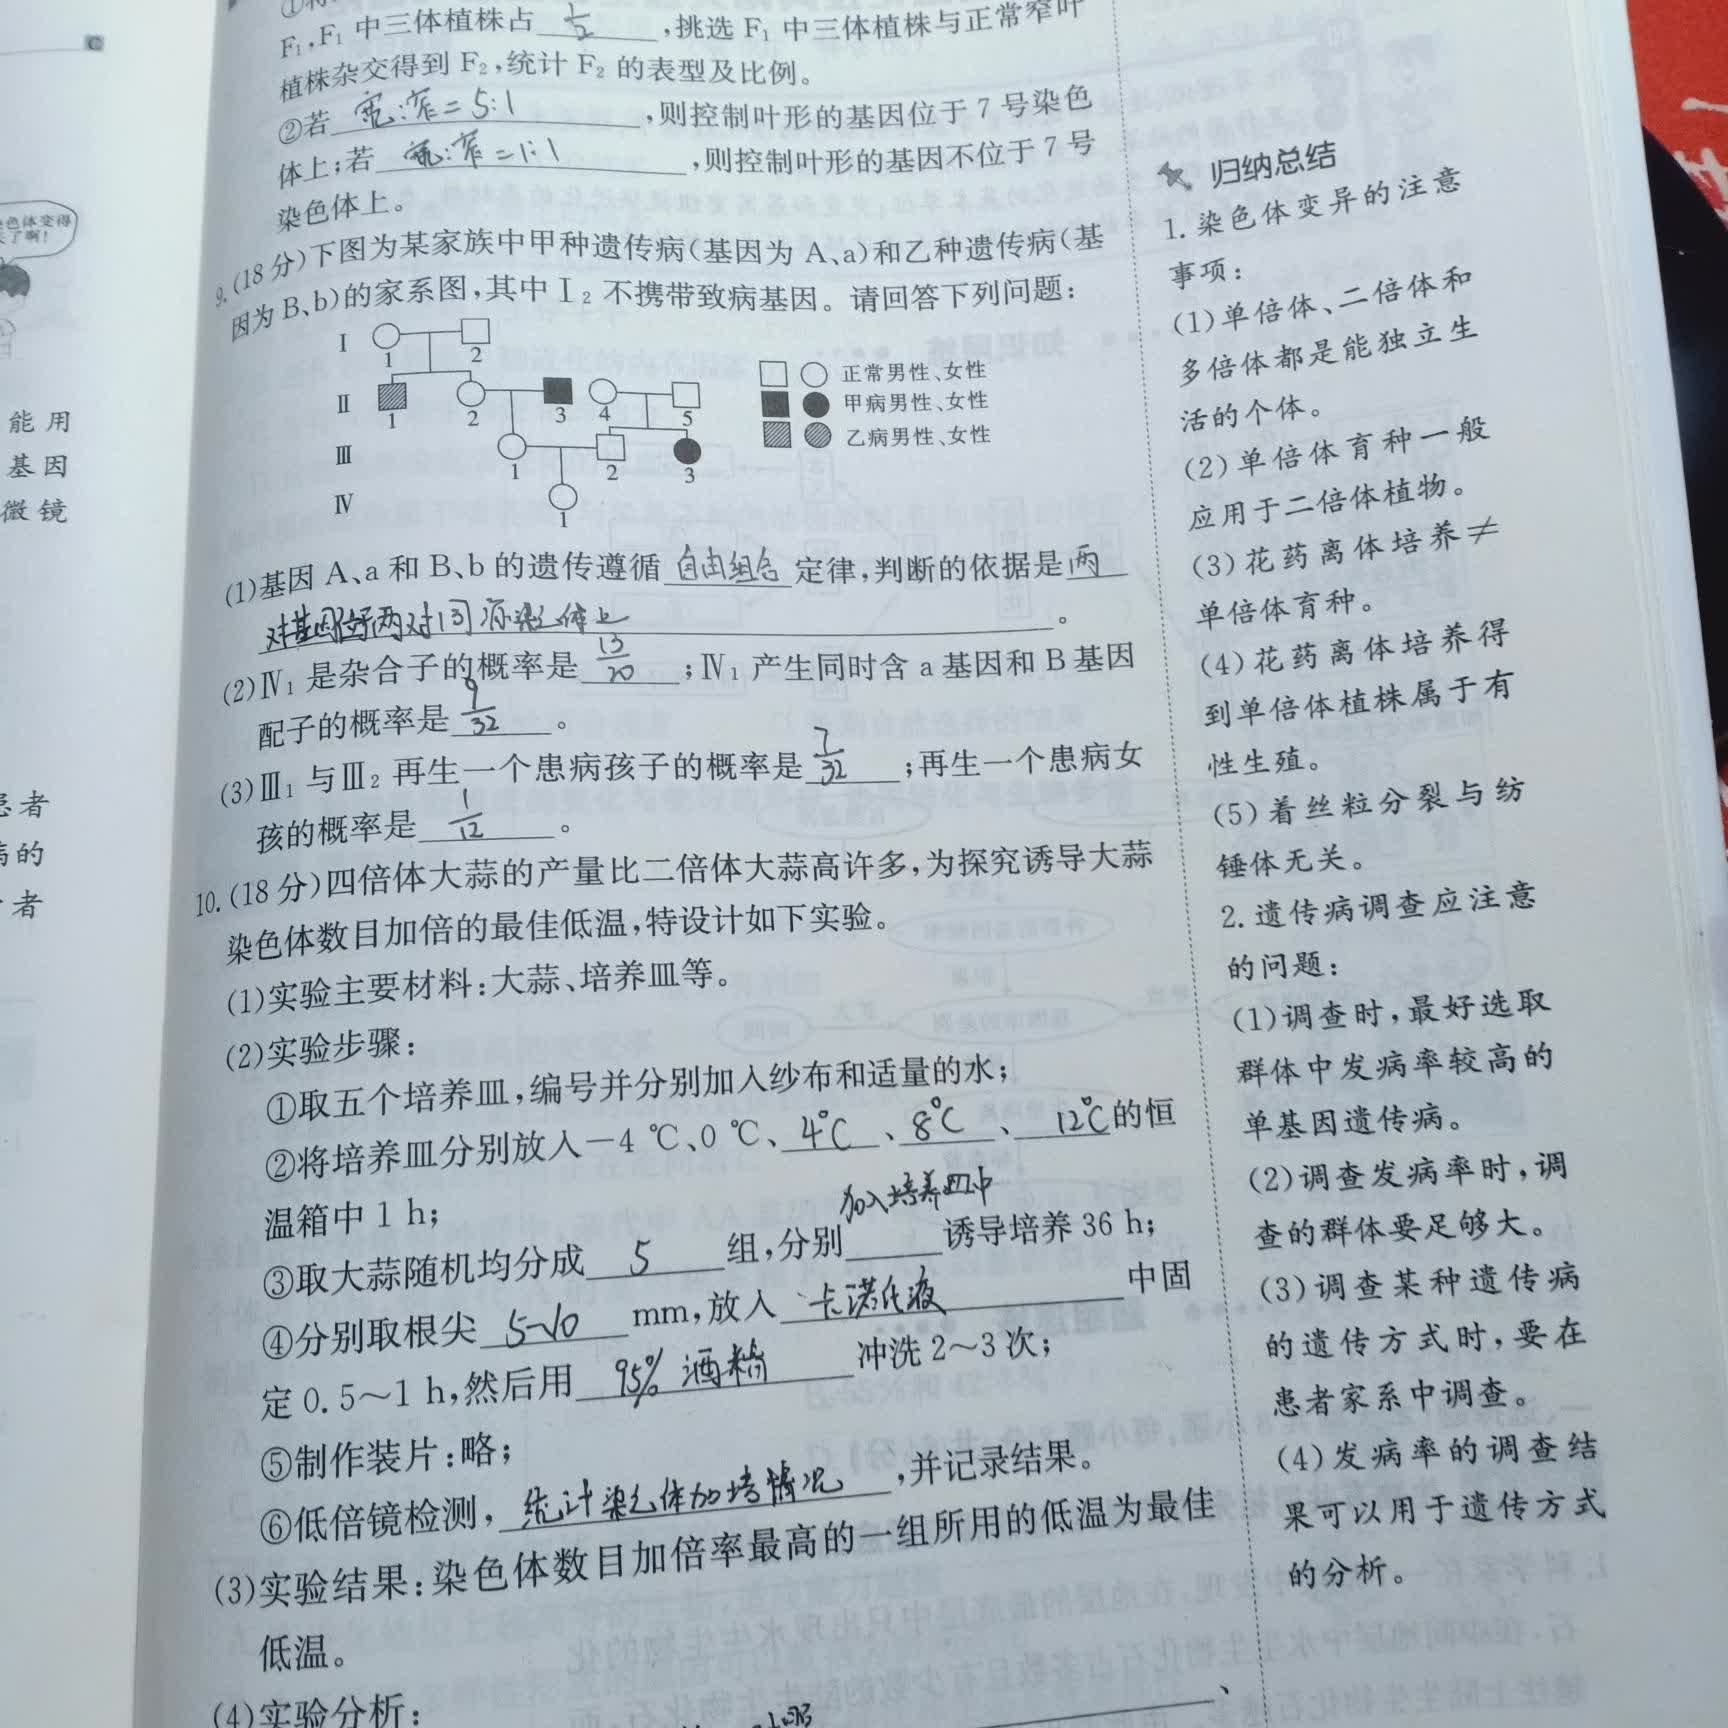 F₁,F₁ 中三体植株占 1/2 ,挑选 F₁ 中三体植株与正常窄叶
植株杂交得到 F₂,统计 F₂ 的表型及比例。
②若 宽:窄=5:1 ,则控制叶形的基因位于 7 号染色
体上;若 宽:窄=1:1 ,则控制叶形的基因不位于 7 号
染色体上。
9.(18 分)下图为某家族中甲种遗传病(基因为 A、a)和乙种遗传病(基
因为 B、b)的家系图,其中 Ⅰ₂ 不携带致病基因。请回答下列问题:
Ⅰ 1 2
Ⅱ 1 2 3 4 5
Ⅲ 1 2 3
Ⅳ 1
正常男性、女性
甲病男性、女性
乙病男性、女性
(1)基因 A、a 和 B、b 的遗传遵循 自由组合 定律,判断的依据是 两
对基因位于两对同源染色体上 。
(2)Ⅳ₁ 是杂合子的概率是 13/20 ;Ⅳ₁ 产生同时含 a 基因和 B 基因
配子的概率是 9/32 。
(3)Ⅲ₁ 与Ⅲ₂ 再生一个患病孩子的概率是 7/32 ;再生一个患病女
孩的概率是 1/12 。
10.(18 分)四倍体大蒜的产量比二倍体大蒜高许多,为探究诱导大蒜
染色体数目加倍的最佳低温,特设计如下实验。
(1)实验主要材料:大蒜、培养皿等。
(2)实验步骤:
①取五个培养皿,编号并分别加入纱布和适量的水;
②将培养皿分别放入－4 ℃、0 ℃、 4℃ 、 8℃ 、 12℃ 的恒
温箱中 1 h;
加入培养皿中
③取大蒜随机均分成 5 组,分别 诱导培养 36 h;
④分别取根尖 5~10 mm,放入 卡诺氏液 中固
定 0.5～1 h,然后用 95% 酒精 冲洗 2～3 次;
⑤制作装片:略;
⑥低倍镜检测, 统计染色体加培情况 ,并记录结果。
(3)实验结果:染色体数目加倍率最高的一组所用的低温为最佳
低温。
(4)实验分析:
归纳总结
1. 染色体变异的注意
事项:
(1)单倍体、二倍体和
多倍体都是能独立生
活的个体。
(2)单倍体育种一般
应用于二倍体植物。
(3)花药离体培养≠
单倍体育种。
(4)花药离体培养得
到单倍体植株属于有
性生殖。
(5)着丝粒分裂与纺
锤体无关。
2. 遗传病调查应注意
的问题:
(1)调查时,最好选取
群体中发病率较高的
单基因遗传病。
(2)调查发病率时,调
查的群体要足够大。
(3)调查某种遗传病
的遗传方式时,要在
患者家系中调查。
(4)发病率的调查结
果可以用于遗传方式
的分析。
色体变得
了啊!
能用
基因
微镜
患者
病的
者